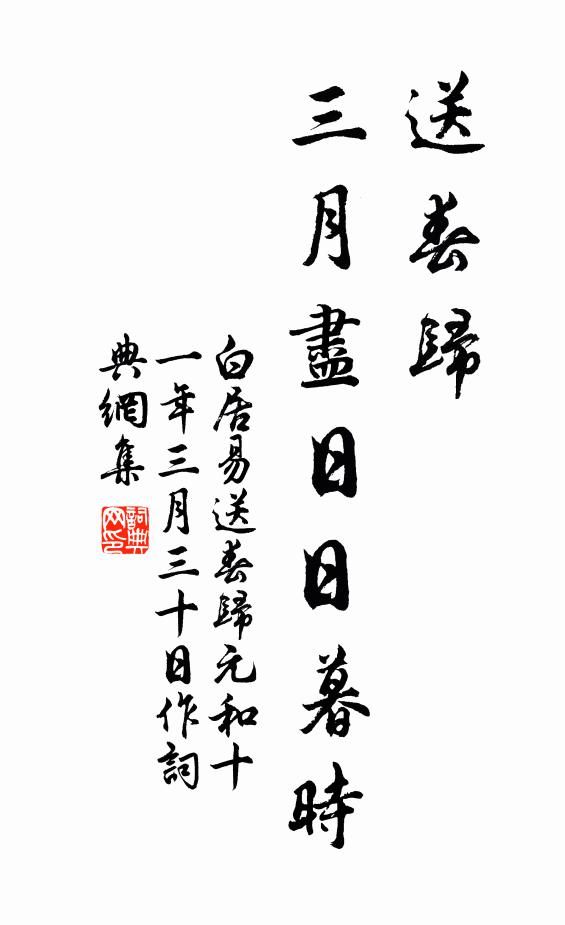 送春歸
三月盡日日暮時
白居易送春歸元和十
一年三月三十日作詞
典網集
詞典
网印